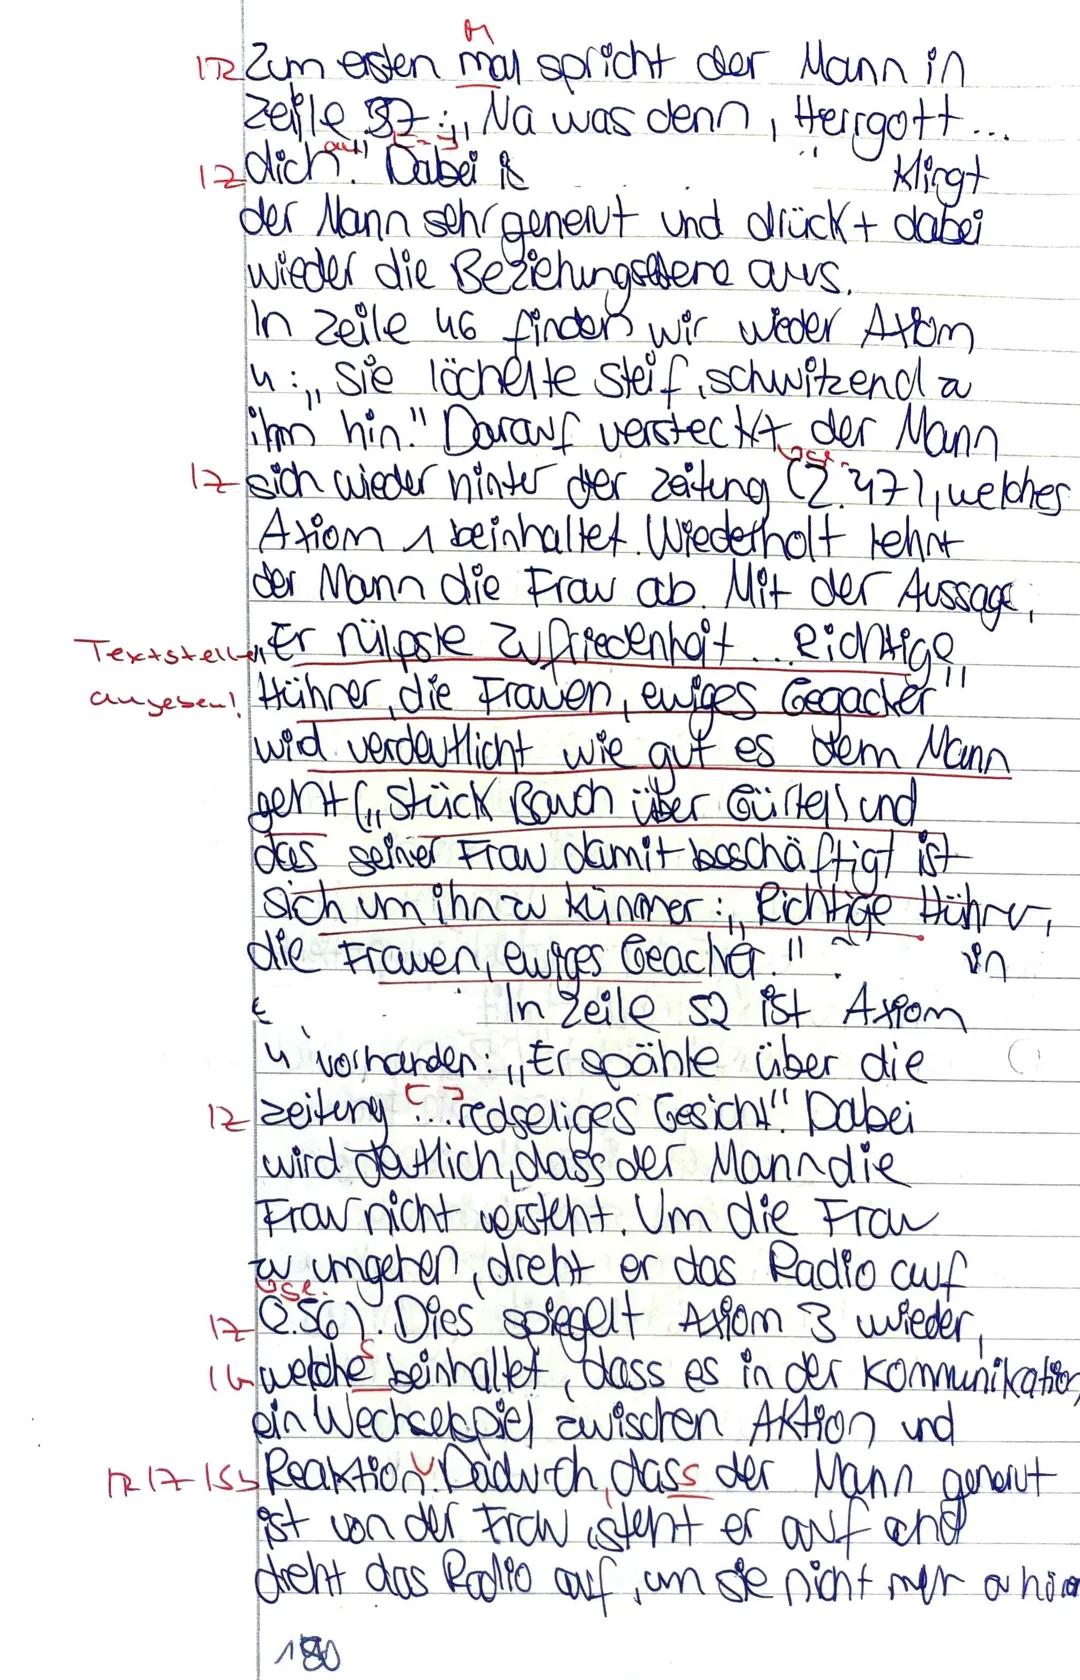 M
1R Zum ersten mal spricht der Mann in
Zeile 37: „Na was denn, Herrgott...
auf
1Z dich." Dabei is Klingt
der Mann sehr genervt und drückt dabei
wieder die Beziehungsebene aus.
In Zeile 46 finden wir wieder Axiom
4: „Sie lächelte steif, schwitzend zu
ihm hin." Darauf versteckt der Mann
1Z sich wieder hinter der Zeitung (Z. 47), welches
Axiom 1 beinhaltet. Wiederholt lehnt
der Mann die Frau ab. Mit der Aussage,
Textstellen „Er rülpste Zufriedenheit... Richtige
angeben! Hühner, die Frauen, ewiges Gegacker"
wird verdeutlicht wie gut es dem Mann
geht („Stück Bauch über Gürtel) und
das seiner Frau damit beschäftigt ist
sich um ihn zu kümmer: „Richtige Hührer,
die Frauen, ewiges Geacher." in
In Zeile 52 ist Axiom
4 vorhanden: „Er spähle über die
1Z Zeitung [...] redseliges Gesicht". Dabei
wird deutlich, dass der Mann die
Frau nicht versteht. Um die Frau
zu umgehen, dreht er das Radio auf
1Z (Z.56). Dies spiegelt Axiom 3 wieder,
s
1G welche beinhaltet, dass es in der Kommunikation
ein Wechselspiel zwischen Aktion und
1R 1Z 1Sb Reaktion. Dadurch, dass der Mann genervt
ist von der Frau, steht er auf und
dreht das Radio auf, um sie nicht mer
180